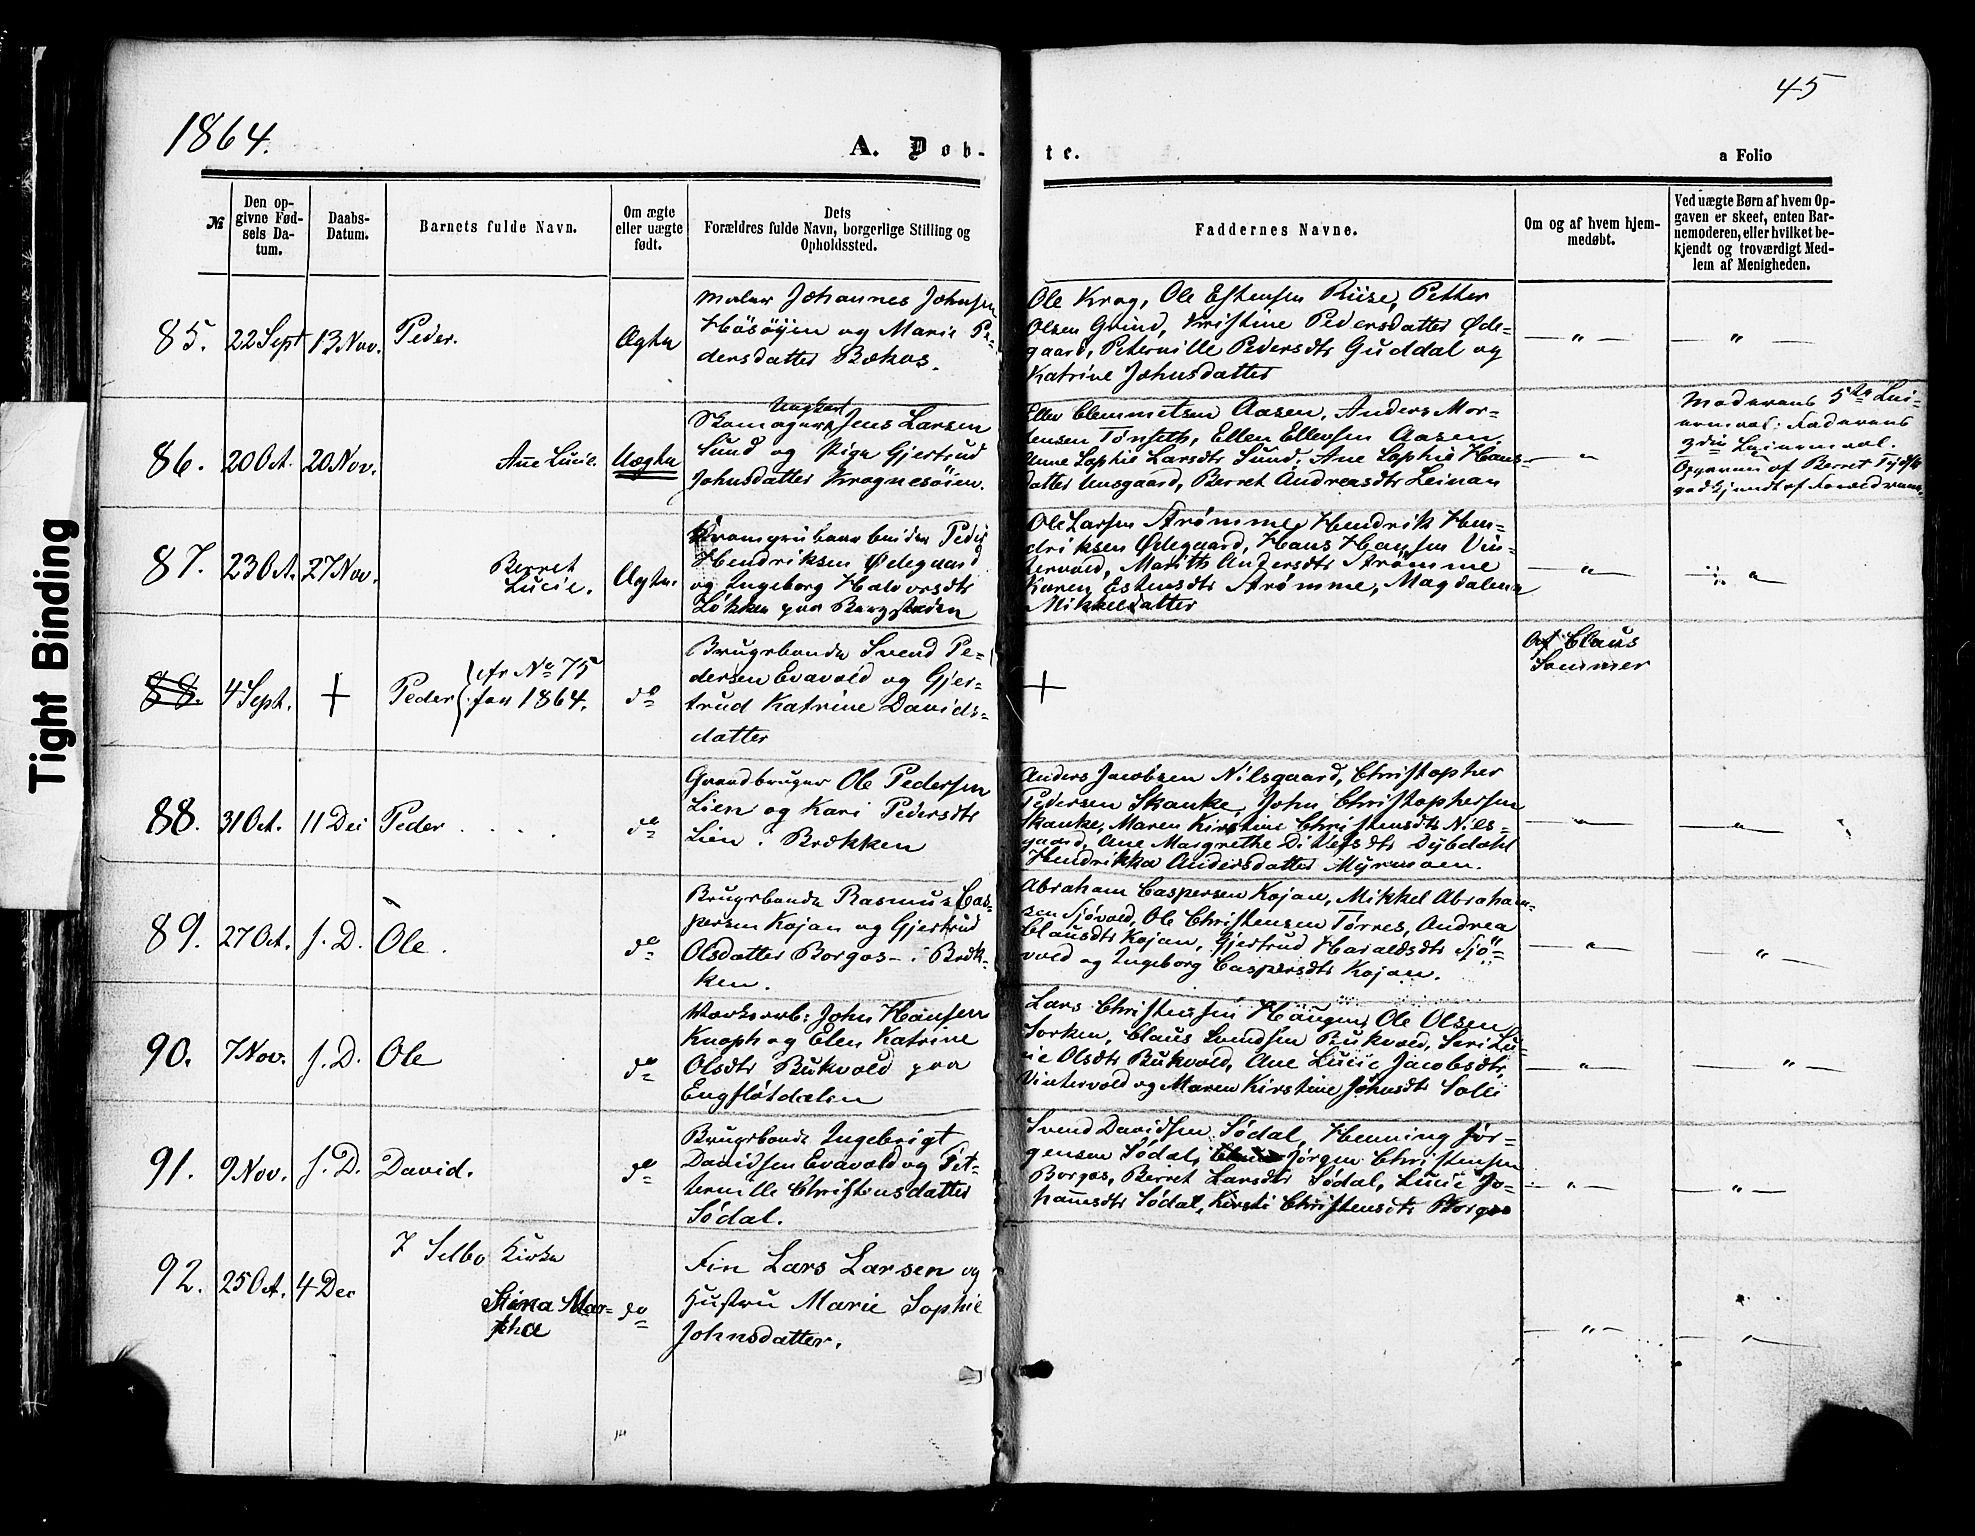 45
1864.
A. Døb-
te.
a Folio
№
Den op-
givne Fød-
sels Da-
tum.
Daabs-
Datum.
Barnets fulde Navn.
Om ægte
eller uægte
født.
Dets
Forældres fulde Navn, borgerlige Stilling og
Opholdssted.
Faddernes Navne.
Om og af hvem hjem-
medøbt.
Ved uægte Børn af hvem Op-
gaven er skeet, enten Bar-
nemoderen, eller hvilket be-
kjendt og troværdigt Med-
lem af Menigheden.
85.
22 Sept
13 Nov.
Peder.
Ægte
Maler Johannes Johnsen
Høsøyen og Marie Pe-
dersdatter Bækos.
Ole Krog, Ole Estensen Riise, Petter
Olsen Grind, Kristine Pedersdatter Øde-
gaard, Peternille Pedersdtr Guddal og
Katrine Johnsdatter
— " —
— " —
86.
20 Oct.
20 Nov.
Ane Lucie.
Uægte
Ungkarl
Skomager Jens Larsen
Sund og Pige Gjertrud
Johnsdatter Krognesøien.
Eller Clemmetsen Aasen, Anders Mor-
tensen Tønseth, Ellen Ellevsen Aasen,
Anne Sophie Larsdtr Sund, Ane Sophie Hans-
datter Unsgaard, Berret Andreasdtr Leinan
— " —
Moderens 5te Lei-
ermaal. Faderens
Leiermaal.
Opgaven af Berret
godkjendt af Forældrene.
87.
23 Oct.
27 Nov.
Berret
Lucie.
Ægte.
Peder
Hendriksen Ødegaard
og Ingeborg Halvorsdtr
Løkken paa Bergstaden
Ole Larsen Strømme, Hendrik Hen-
driksen Ødegaard, Hans Hansen Vin-
tervold, Marith Andersdtr Strømme
Karen Estensdtr Strømme, Magdalena
Mikkelsdatter
— " —
— " —
88.
4 Sept.
+
Peder
cfr No 75
for 1864.
do
Brugsbonde Svend Pe-
dersen Evavold og Gjer-
trud Katrine Davids-
datter
+
Af Claus
Sommer
88.
31 Oct.
11 Dec
Peder . . . .
do
Grundbruger Ole Pedersen
Lien og Kari Pedersdtr
Lien i Brækken
Anders Jacobsen Nilsgaard, Christopher
Pedersen Skanke, John Christophersen
Skanke, Maren Kirstine Christensdtr Nils-
gaard, Ane Margrethe Ditlefsdtr Dybdahl
Hendrikka Andersdatter Myrmoen.
— " —
— " —
89.
27 Oct.
s. D.
Ole.
do
Brugsbonde Rasmus Cas-
persen Kojan og Gjertrud
Olsdatter Borgos - i Bræk-
ken.
Abraham Caspersen Kojan, Mikkel Abraham-
sen Sjøvold, Ole Christensen Tørres, Andrea
Clausdtr Kojan, Gjertrud Haraldsdtr Sjø-
vold og Ingeborg Caspersdtr Kojan.
— " —
— " —
90.
7 Nov.
s. D.
Ole
do
Værksarb: John Hansen
Knoph og Elen Katrine
Olsdtr Bukvold paa
Engfløtdalen
Lars Christensen Haugen, Ole Olsen
Sorken, Claus Svendsen Bukvold, Seri Lu-
cie Olsdtr Bukvold, Ane Lucie Jacobsdtr
Vintervold og Maren Kirstine Johnsdtr Solli
— " —
— " —
91.
9 Nov.
s. D.
David.
do
Brugsbonde Ingebrigt
Davidsen Evavold og Pet-
ternille Christensdatter
Sødal.
Svend Davidsen Sødal, Henning Jør-
gensen Sødal, Jørgen Christensen
Borgos, Berret Larsdtr Sødal, Lucie Jo-
hannesdtr Sødal, Kirsti Christensdtr Borgos
— " —
— " —
92.
25 Oct.
4 Dec
I Selbo Kirke
Stina Mar-
tha
do
Fin Lars Larsen og
Hustru Marie Sophie
Johnsdatter.
— " —
— " —
Tight Binding